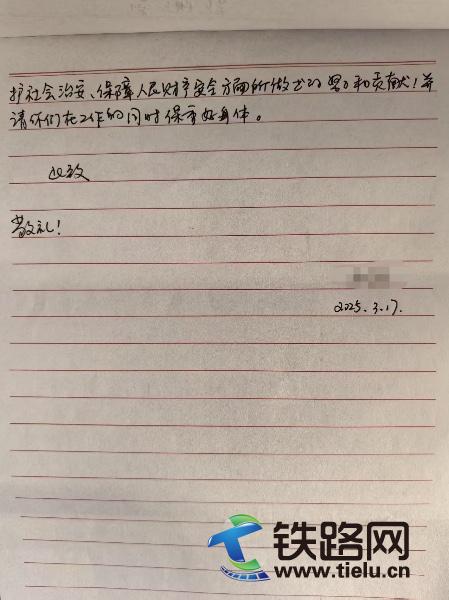 护社会治安、保障人民财产安全方面所做出的努力和贡献！并
请你们在工作的同时保重好身体。
此致
敬礼！
2025.3.17.
铁路网
www.tielu.cn